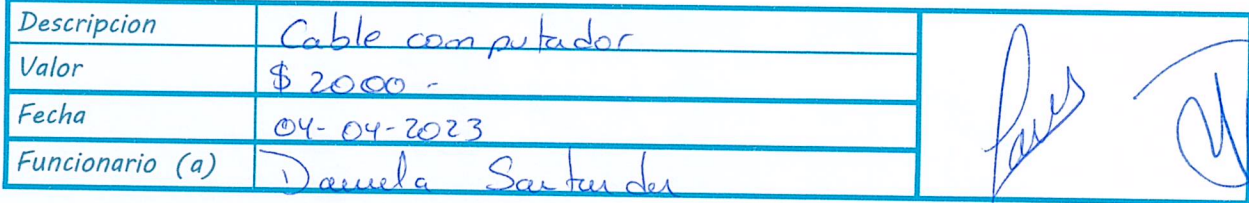 Descripcion Cable computador
Valor $ 2000 -
Fecha 04-04-2023
Funcionario (a) Daniela Santander